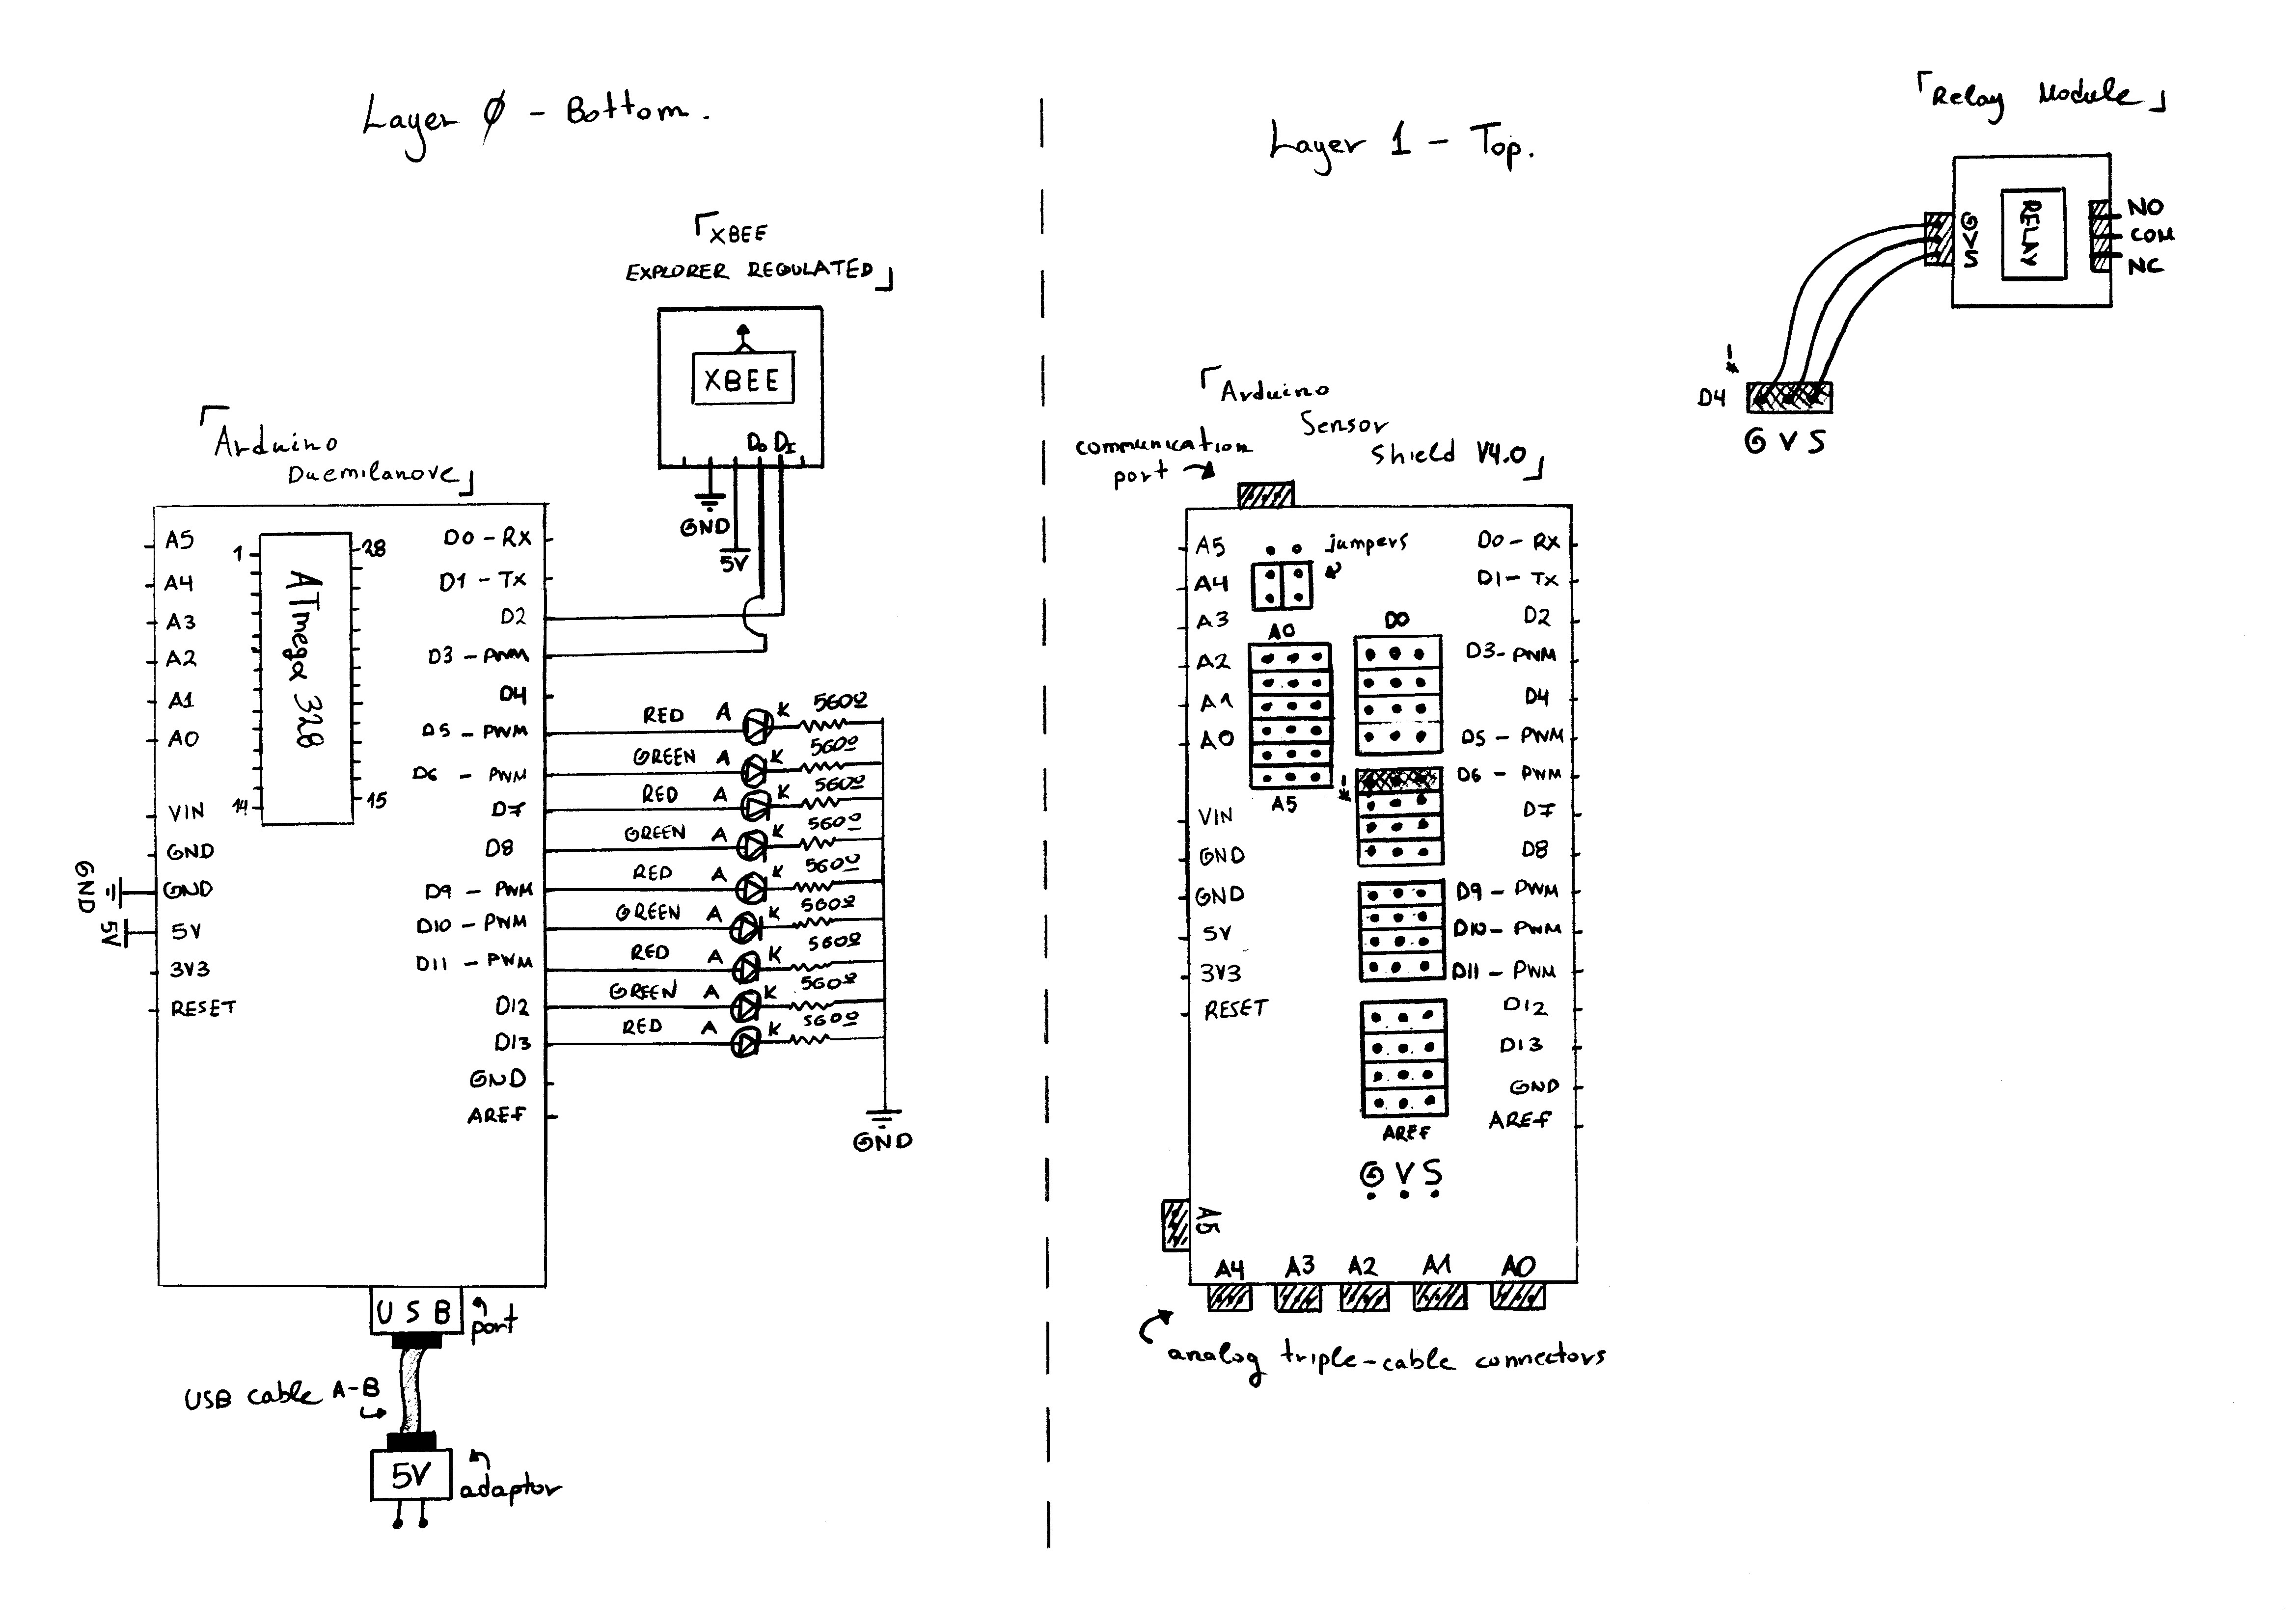 Layer 0 - Bottom.
「XBEE
EXPLORER REGULATED」
XBEE
Do DI
GND
5V
「Arduino
Duemilanove」
A5
A4
A3
A2
A1
A0
VIN
GND
GND
5V
3V3
RESET
GND
5V
1
28
ATmega 328
14
15
D0 - RX
D1 - TX
D2
D3 - PWM
D4
D5 - PWM
D6 - PWM
D7
D8
D9 - PWM
D10 - PWM
D11 - PWM
D12
D13
GND
AREF
RED A K 560Ω
GREEN A K 560Ω
RED A K 560Ω
GREEN A K 560Ω
RED A K 560Ω
GREEN A K 560Ω
RED A K 560Ω
GREEN A K 560Ω
RED A K 560Ω
GND
USB
port
USB cable A-B
5V
adaptor
Layer 1 - Top.
「Relay Module」
RELAY
G V S
NO
COM
NC
*-
D4
G V S
「Arduino
Sensor
Shield V4.0」
communication
port
A5
A4
A3
A2
A1
A0
VIN
GND
GND
5V
3V3
RESET
jumpers
A0
A5
D0
*-
AREF
G V S
D0 - RX
D1 - TX
D2
D3 - PWM
D4
D5 - PWM
D6 - PWM
D7
D8
D9 - PWM
D10 - PWM
D11 - PWM
D12
D13
GND
AREF
A5
A4 A3 A2 A1 A0
analog triple-cable connectors